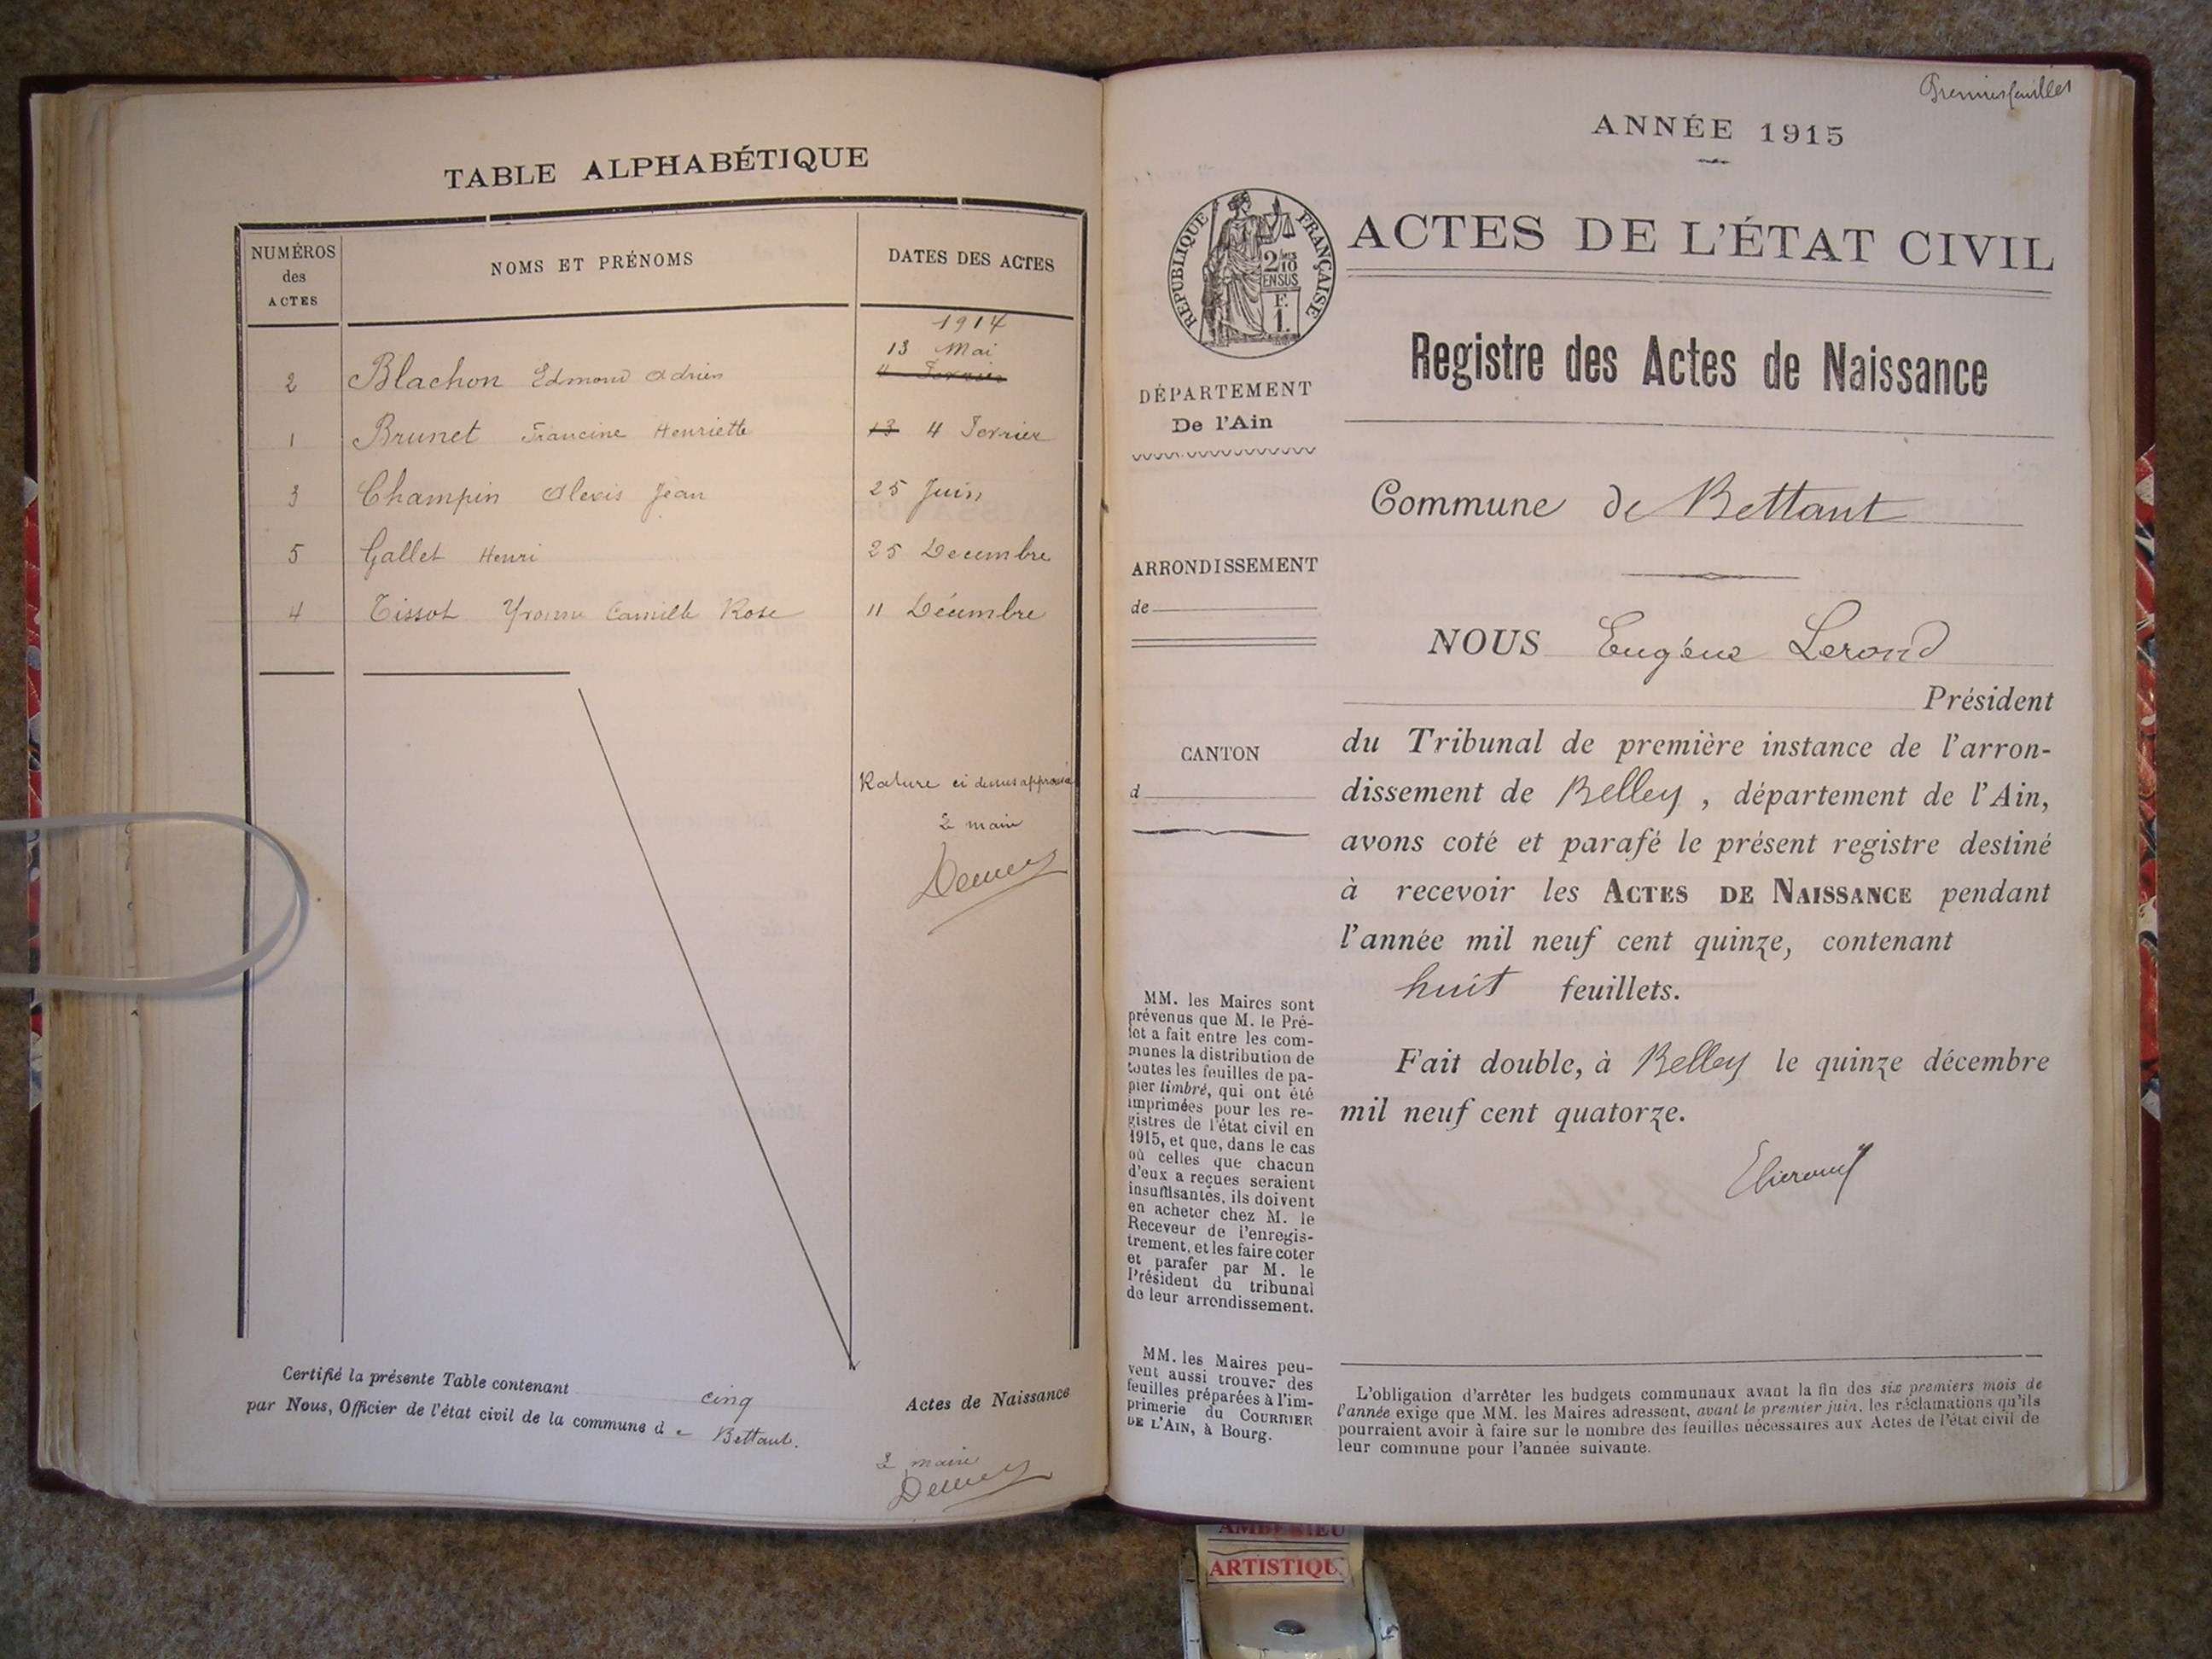 TABLE ALPHABÉTIQUE
NUMÉROS
des
ACTES
NOMS ET PRÉNOMS
DATES DES ACTES
1914
13 Mai
2 Blachon Edmond Adrien
1 Brunet Francine Henriette 13 4 Fevrier
3 Champin Alexis Jean 25 Juin
5 Gallet Henri 25 Decembre
4 Tissot Yvonne Camille Rose 11 Décembre
Rature ci dessus approuvée
Le maire
Certifié la présente Table contenant cinq Actes de Naissance
par Nous, Officier de l'état civil de la commune de Bettant.
Le maire
Premier feuillet
ANNÉE 1915
RÉPUBLIQUE FRANÇAISE
2/10
EN SUS
F.
1.
ACTES DE L'ÉTAT CIVIL
Registre des Actes de Naissance
DÉPARTEMENT
De l'Ain
Commune de Bettant
ARRONDISSEMENT
de
CANTON
d
NOUS Eugène Lerond
Président
du Tribunal de première instance de l'arron-
dissement de Belley, département de l'Ain,
avons coté et parafé le présent registre destiné
à recevoir les ACTES DE NAISSANCE pendant
l'année mil neuf cent quinze, contenant
huit feuillets.
Fait double, à Belley le quinze décembre
mil neuf cent quatorze.
MM. les Maires sont
prévenus que M. le Pré-
fet a fait entre les com-
munes la distribution de
toutes les feuilles de pa-
pier timbré, qui ont été
imprimées pour les re-
gistres de l'état civil en
1915, et que, dans le cas
où celles que chacun
d'eux a reçues seraient
insuffisantes, ils doivent
en acheter chez M. le
Receveur de l'enregis-
trement, et les faire coter
et parafer par M. le
Président du tribunal
de leur arrondissement.
MM. les Maires peu-
vent aussi trouver des
feuilles préparées à l'im-
primerie du COURRIER
DE L'AIN, à Bourg.
L'obligation d'arrêter les budgets communaux avant la fin des six premiers mois de
l'année exige que MM. les Maires adressent, avant le premier juin, les réclamations qu'ils
pourraient avoir à faire sur le nombre des feuilles nécessaires aux Actes de l'état civil de
leur commune pour l'année suivante.
AMBERIEU
ARTISTIQU